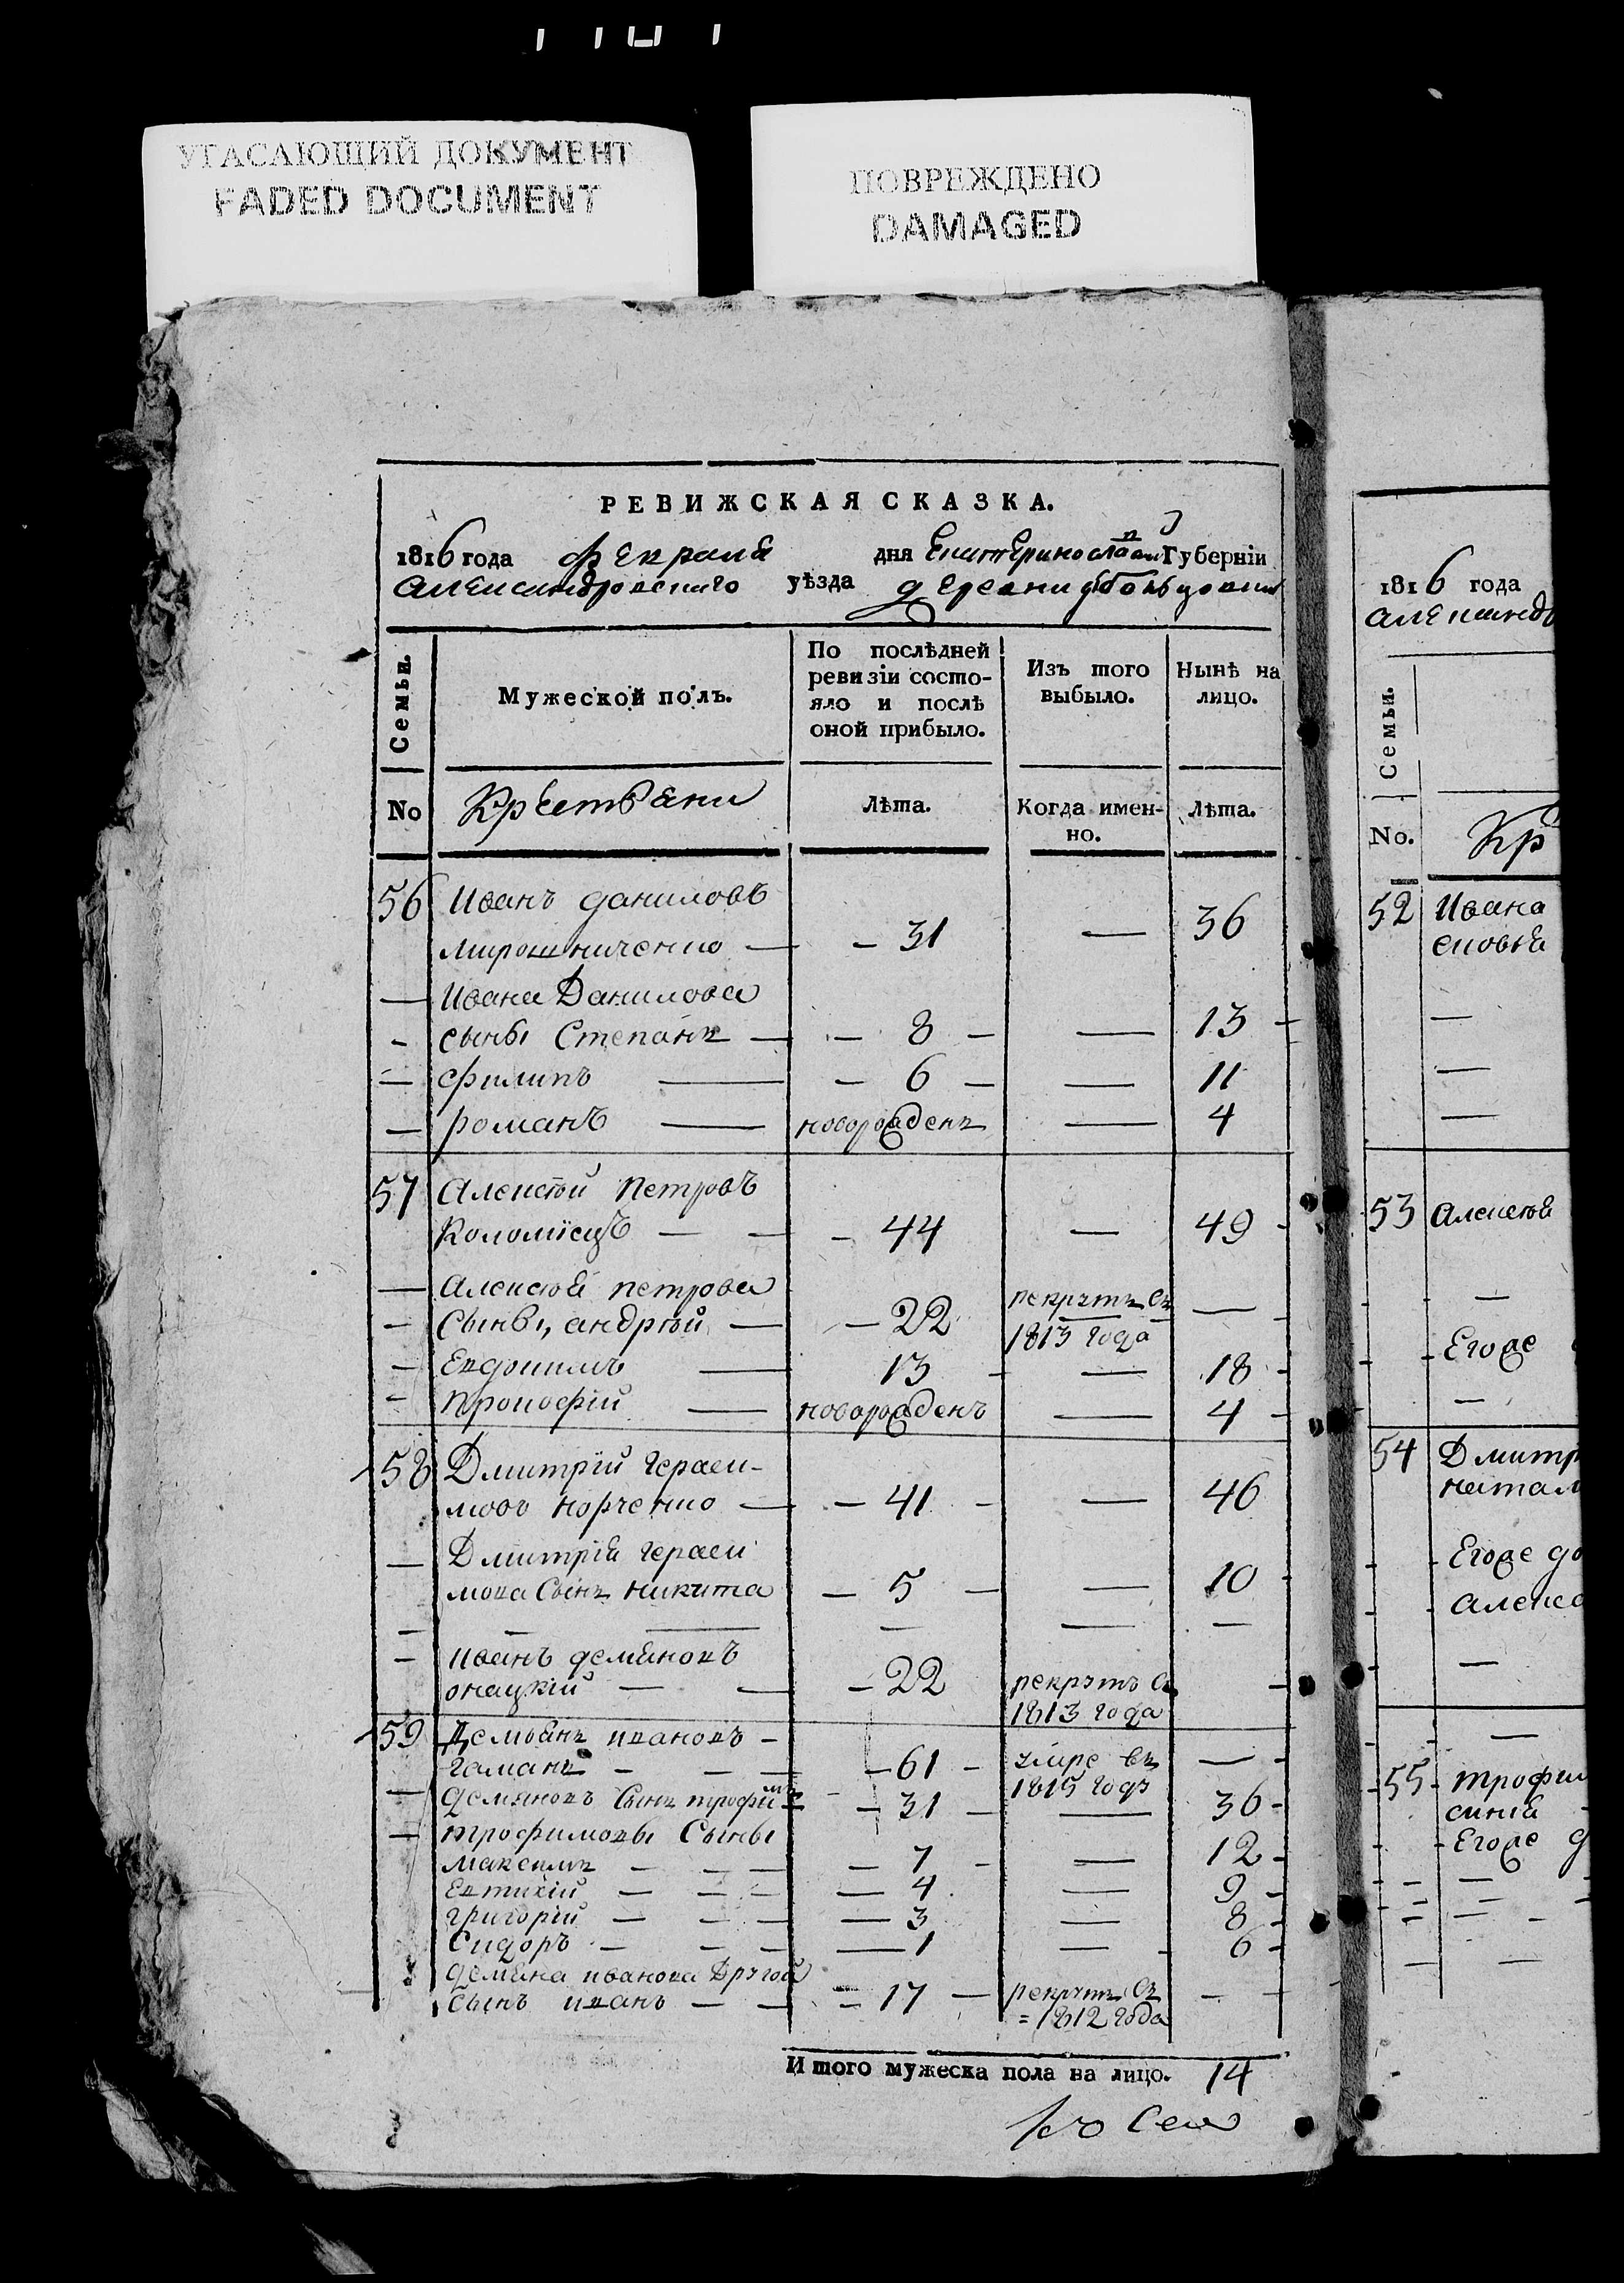 УГАСАЮЩИЙ ДОКУМЕНТ
FADED DOCUMENT
ПОВРЕЖДЕНО
DAMAGED
РЕВИЖСКАЯ СКАЗКА.
1816 года февраля дня Екатеринославской Губерніи
александровскаго уѣзда деревни
Семьи.
Мужеской полъ.
По послѣдней
ревизіи состо-
яло и послѣ
оной прибыло.
Изъ того
выбыло.
Нынѣ на
лицо.
No
Крестьяни
Лѣта.
Когда имен-
но.
Лѣта.
56 Иванъ даниловъ
мирошниченко — — 31 — 36
— Ивана Данилова
- сыны Степанъ — — 8 — — 13 -
— филипъ — — 6 — — 11
— романъ — новорожденъ — 4
57 Алексѣй Петровъ
Коломіецъ — — - 44 — 49 -
— Алексѣя петрова рекрутъ съ
- Сыны, андрѣй — — 22 1813 года —
- Евдокимъ — 13 - — 18 -
- Прокофій — новорожденъ — 4 -
58 Дмитрій гераси-
мовъ корченко — — 41 - — 46
— Дмитрія гераси
мова Сынъ никита — 5 — — 10 -
- — — — — —
- иванъ демяновъ
онацкій — — — 22 рекрутъ съ
1813 года
59 Демьянъ ивановъ -
гаманъ - — — — 61 - умре въ — -
— демяновъ Сынъ трофимъ — 31 — 1815 годъ — 36 -
— трофимовы Сыны
максимъ — — — — 7 - — 12 -
Евтихій — — — — 4 — 9 -
григорій — — — — 3 — 8 -
Сидоръ — — — — 1 — 6 -
демяна иванова другой
сынъ иванъ — — — 17 — рекрутъ съ — -
= 1812 года
Итого мужеска пола на лицо. 14
1816 года
александр
Семьи.
No.
Кр
52 Ивана
53 алексѣя
Егоже
54 Дмитр
натал
Егоже до
алекса
55 трофим
Егоже д